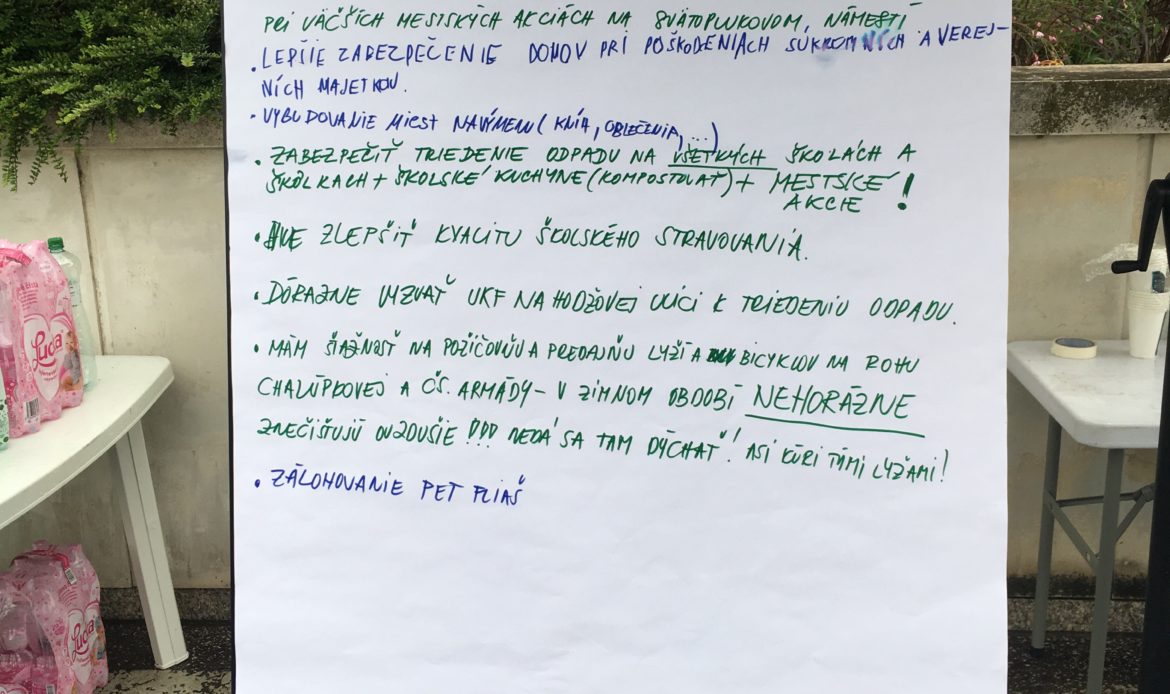 PRI VÄČŠÍCH MESTSKÝCH AKCIÁCH NA SVÄTOPLUKOVOM, NÁMESTÍ
• LEPŠIE ZABEZPEČENIE DOMOV PRI POŠKODENIACH SÚKROMNÝCH A VEREJ-
NÍCH MAJETKOV.
• VYBUDOVANIE MIEST NAVÝMENU (KNÍH, OBLEČENIA, ...)
• ZABEZPEČIŤ TRIEDENIE ODPADU NA VŠETKÝCH ŠKOLÁCH A
ŠKÔLKACH + ŠKOLSKÉ KUCHYNE (KOMPOSTOVAŤ) + MESTSKÉ
AKCIE !
• ZLEPŠIŤ KVALITU ŠKOLSKÉHO STRAVOVANIA.
• DÔRAZNE VYZVAŤ UKF NA HODŽOVEJ ULICI K TRIEDENIU ODPADU.
• MÁM SŤAŽNOSŤ NA POŽIČOVŇU A PREDAJŇU LYŽÍ A BICYKLOV NA ROHU
CHALÚPKOVEJ A ČS. ARMÁDY – V ZIMNOM OBDOBÍ NEHORÁZNE
ZNEČISŤUJÚ OVZDUŠIE !!! NEDÁ SA TAM DÝCHAŤ! ASI KÚRI TÝMI LYŽAMI!
• ZÁLOHOVANIE PET FLIAŠ
Lucka
Lucka